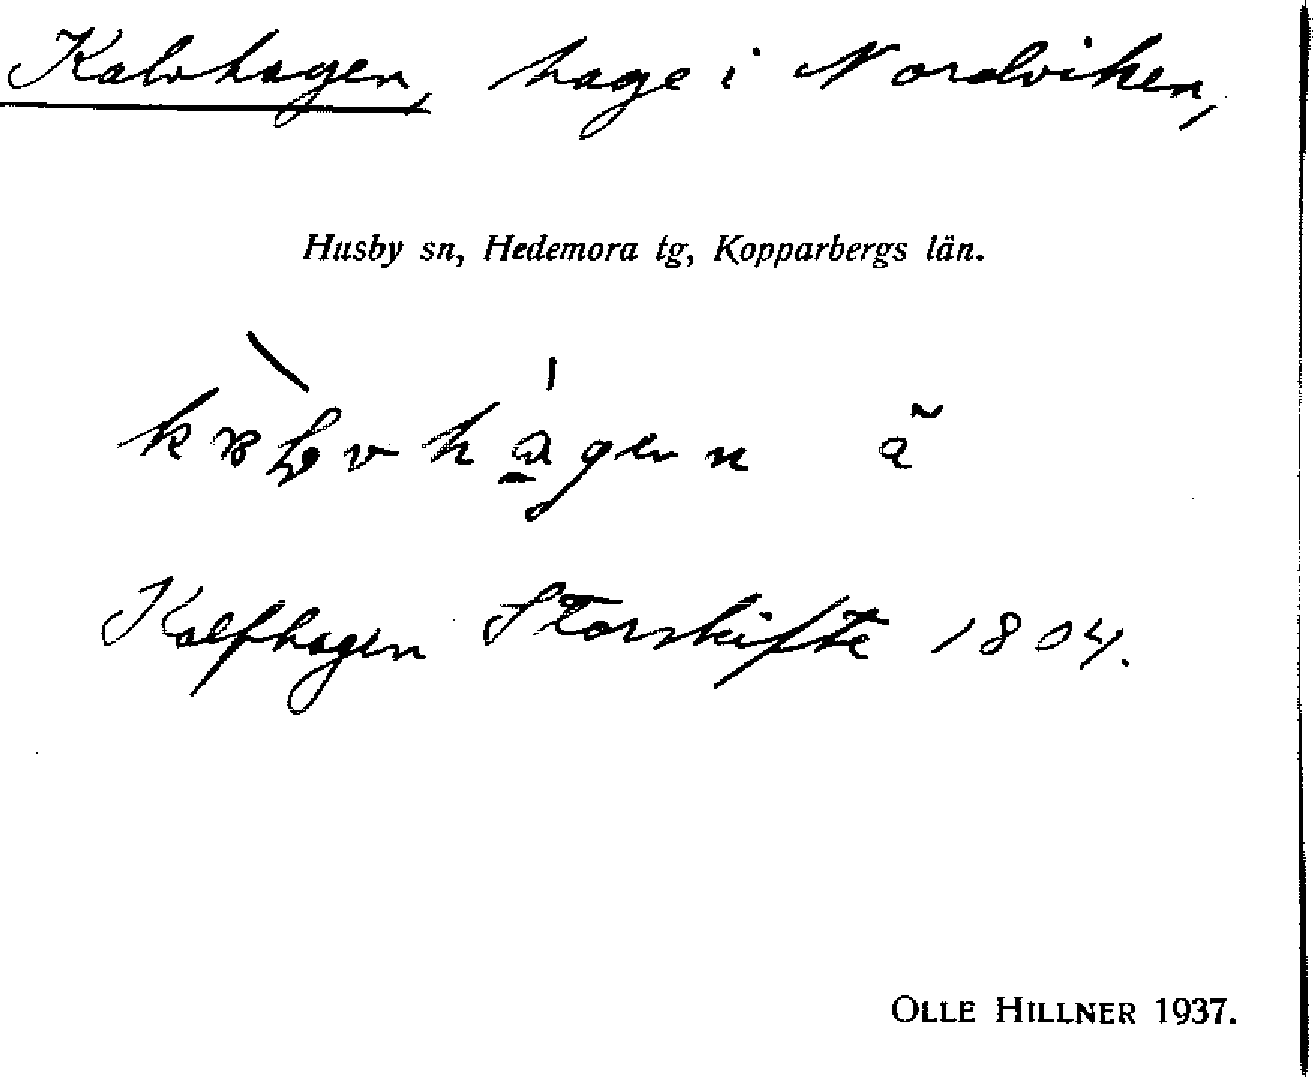 Kalvhagen, hage i Nordviken,
Husby sn, Hedemora tg, Kopparbergs län.
Kalfhagen Storskifte 1804.
OLLE HILLNER 1937.